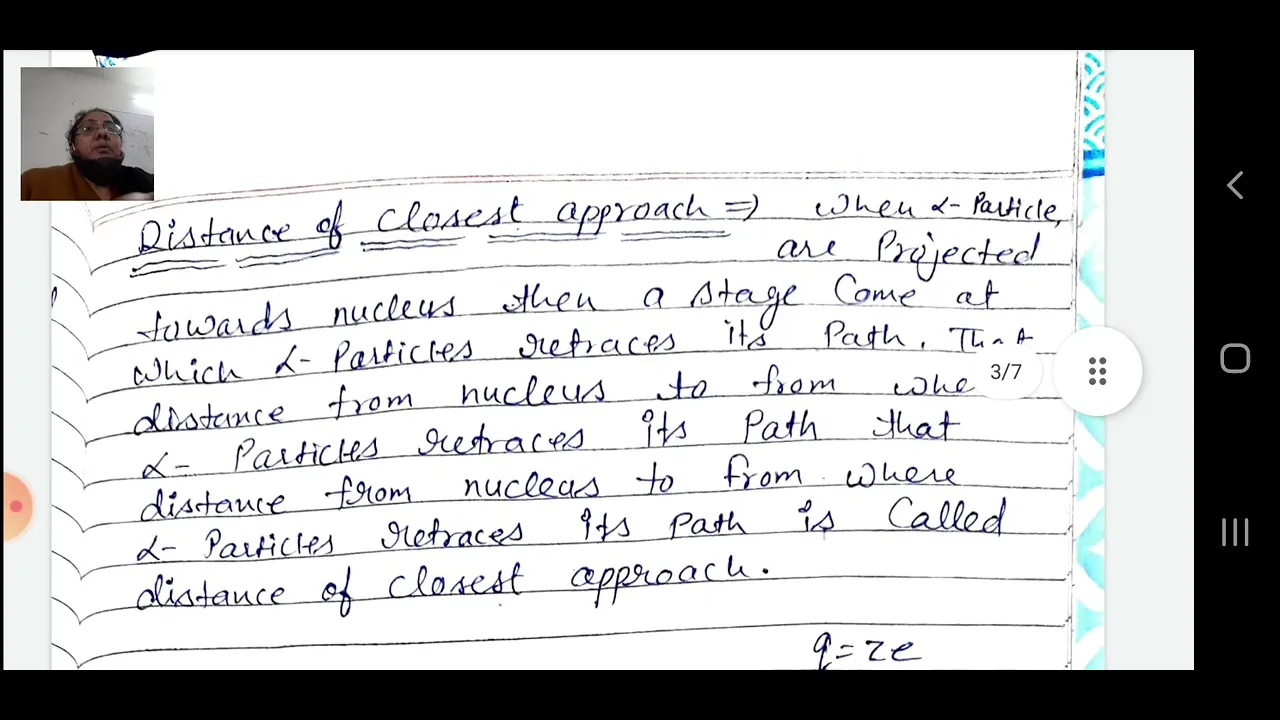 Distance of closest approach ⇒ when α-Particle,
are Projected
towards nucleus then a stage Come at
which α-Particles retraces its Path. That
distance from nucleus to from whe
3/7
α- Particles retraces its Path that
distance from nucleus to from where
α-Particles retraces its Path is Called
distance of closest approach.
q=ze